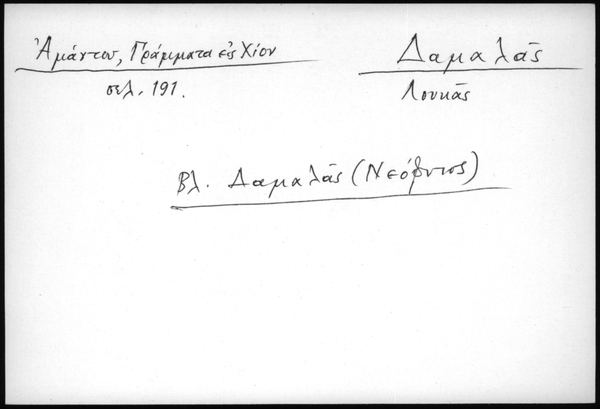 Ἀμάντου, Γράμματα εἰς Χίον
σελ. 191.
Δαμαλᾶς
Λουκᾶς
Βλ. Δαμαλᾶς (Νεόφυτος)